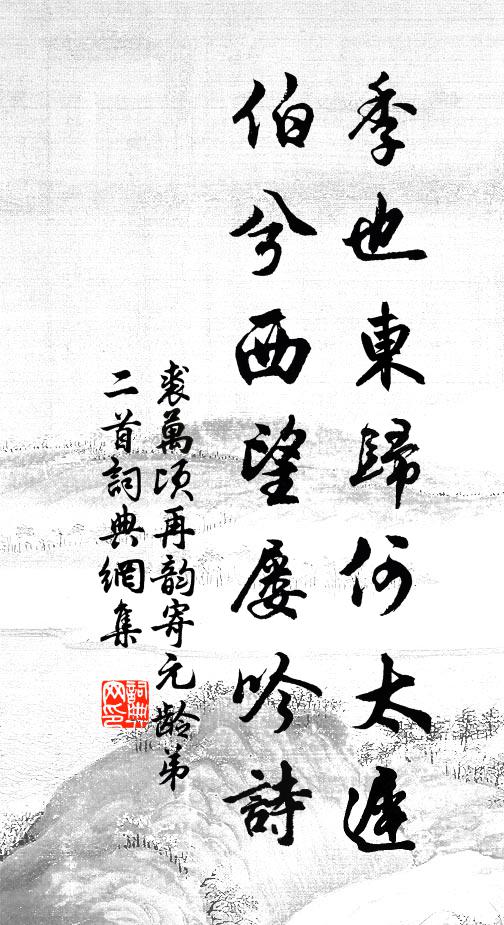 季也東歸何太遲
伯兮西望屡吟詩
裘萬頃再韵寄元龄弟
二首詞典網集
詞典
网印